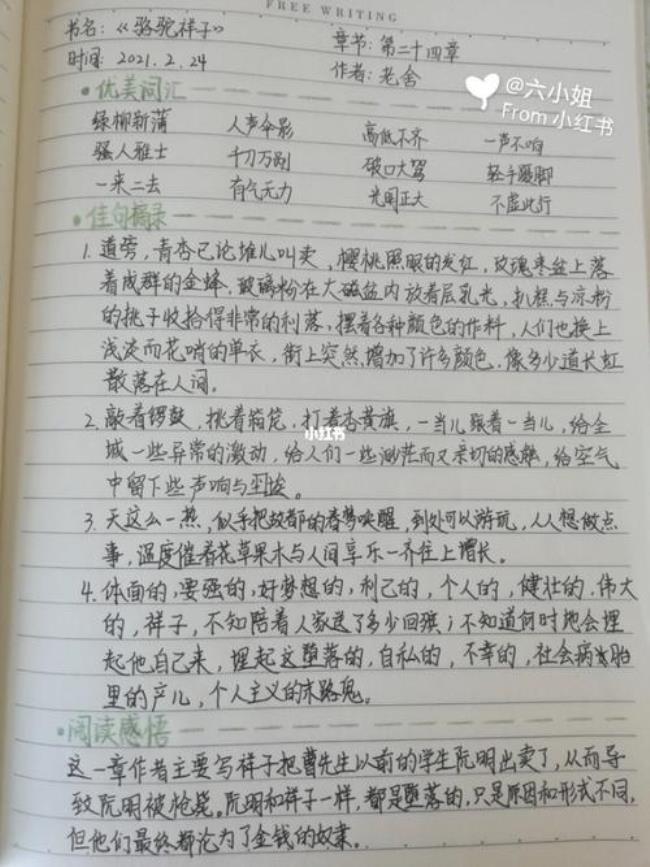 FREE WRITING
书名:《骆驼祥子》 章节:第二十四章
时间:2021.2.24 作者:老舍
@六小姐
From 小红书
优美词汇
绿柳新蒲 人声伞影 高低不齐 一声不响
骚人雅士 千刀万剐 破口大骂 轻手蹑脚
一来二去 有气无力 光明正大 不虚此行
佳句摘录
1. 道旁,青杏已论堆儿叫卖,樱桃照眼的发红,玫瑰枣盆上落
着成群的金蜂,玻璃粉在大磁盆内放着层乳光,扒糕与凉粉
的挑子收拾得非常的利落,摆着各种颜色的作料,人们也换上
浅淡而花哨的单衣,街上突然增加了许多颜色,像多少道长虹
散落在人间。
2. 敲着锣鼓,挑着箱笼,打着杏黄旗,一当儿跟着一当儿,给全
城一些异常的激动,给人们一些渺茫而又亲切的感触,给空气
中留下些声响与埃。
小红书
3. 天这么一热,似乎把故都的春梦唤醒,到处可以游玩,人人想做点
事,温度催着花草果木与人间享乐一齐往上增长。
4. 体面的,要强的,好梦想的,利己的,个人的,健壮的,伟大
的,祥子,不知陪着人家送了多少回殡;不知道何时何地会埋
起他自己来,埋起这堕落的,自私的,不幸的,社会病胎
里的产儿,个人主义的末路鬼。
阅读感悟
这一章作者主要写祥子把曹先生以前的学生阮明出卖了,从而导
致阮明被枪毙。阮明和祥子一样,都是堕落的,只是原因和形式不同,
但他们最终都沦为了金钱的奴隶。